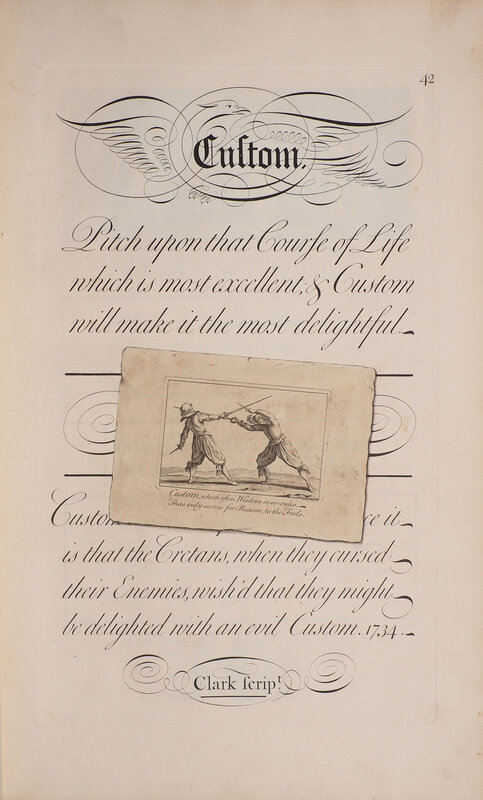 42
Cuſtom.
Pitch upon that Courſe of Life
which is most excellent, & Custom
will make it the most delightful.
Custom, which often Wisdom over-rules,
Thus only serves for Reason, to the Fools.
Custom
ce it
is that the Cretans, when they cursed
their Enemies, wish'd that they might
be delighted with an evil Custom. 1734.
Clark ſcripᵗ